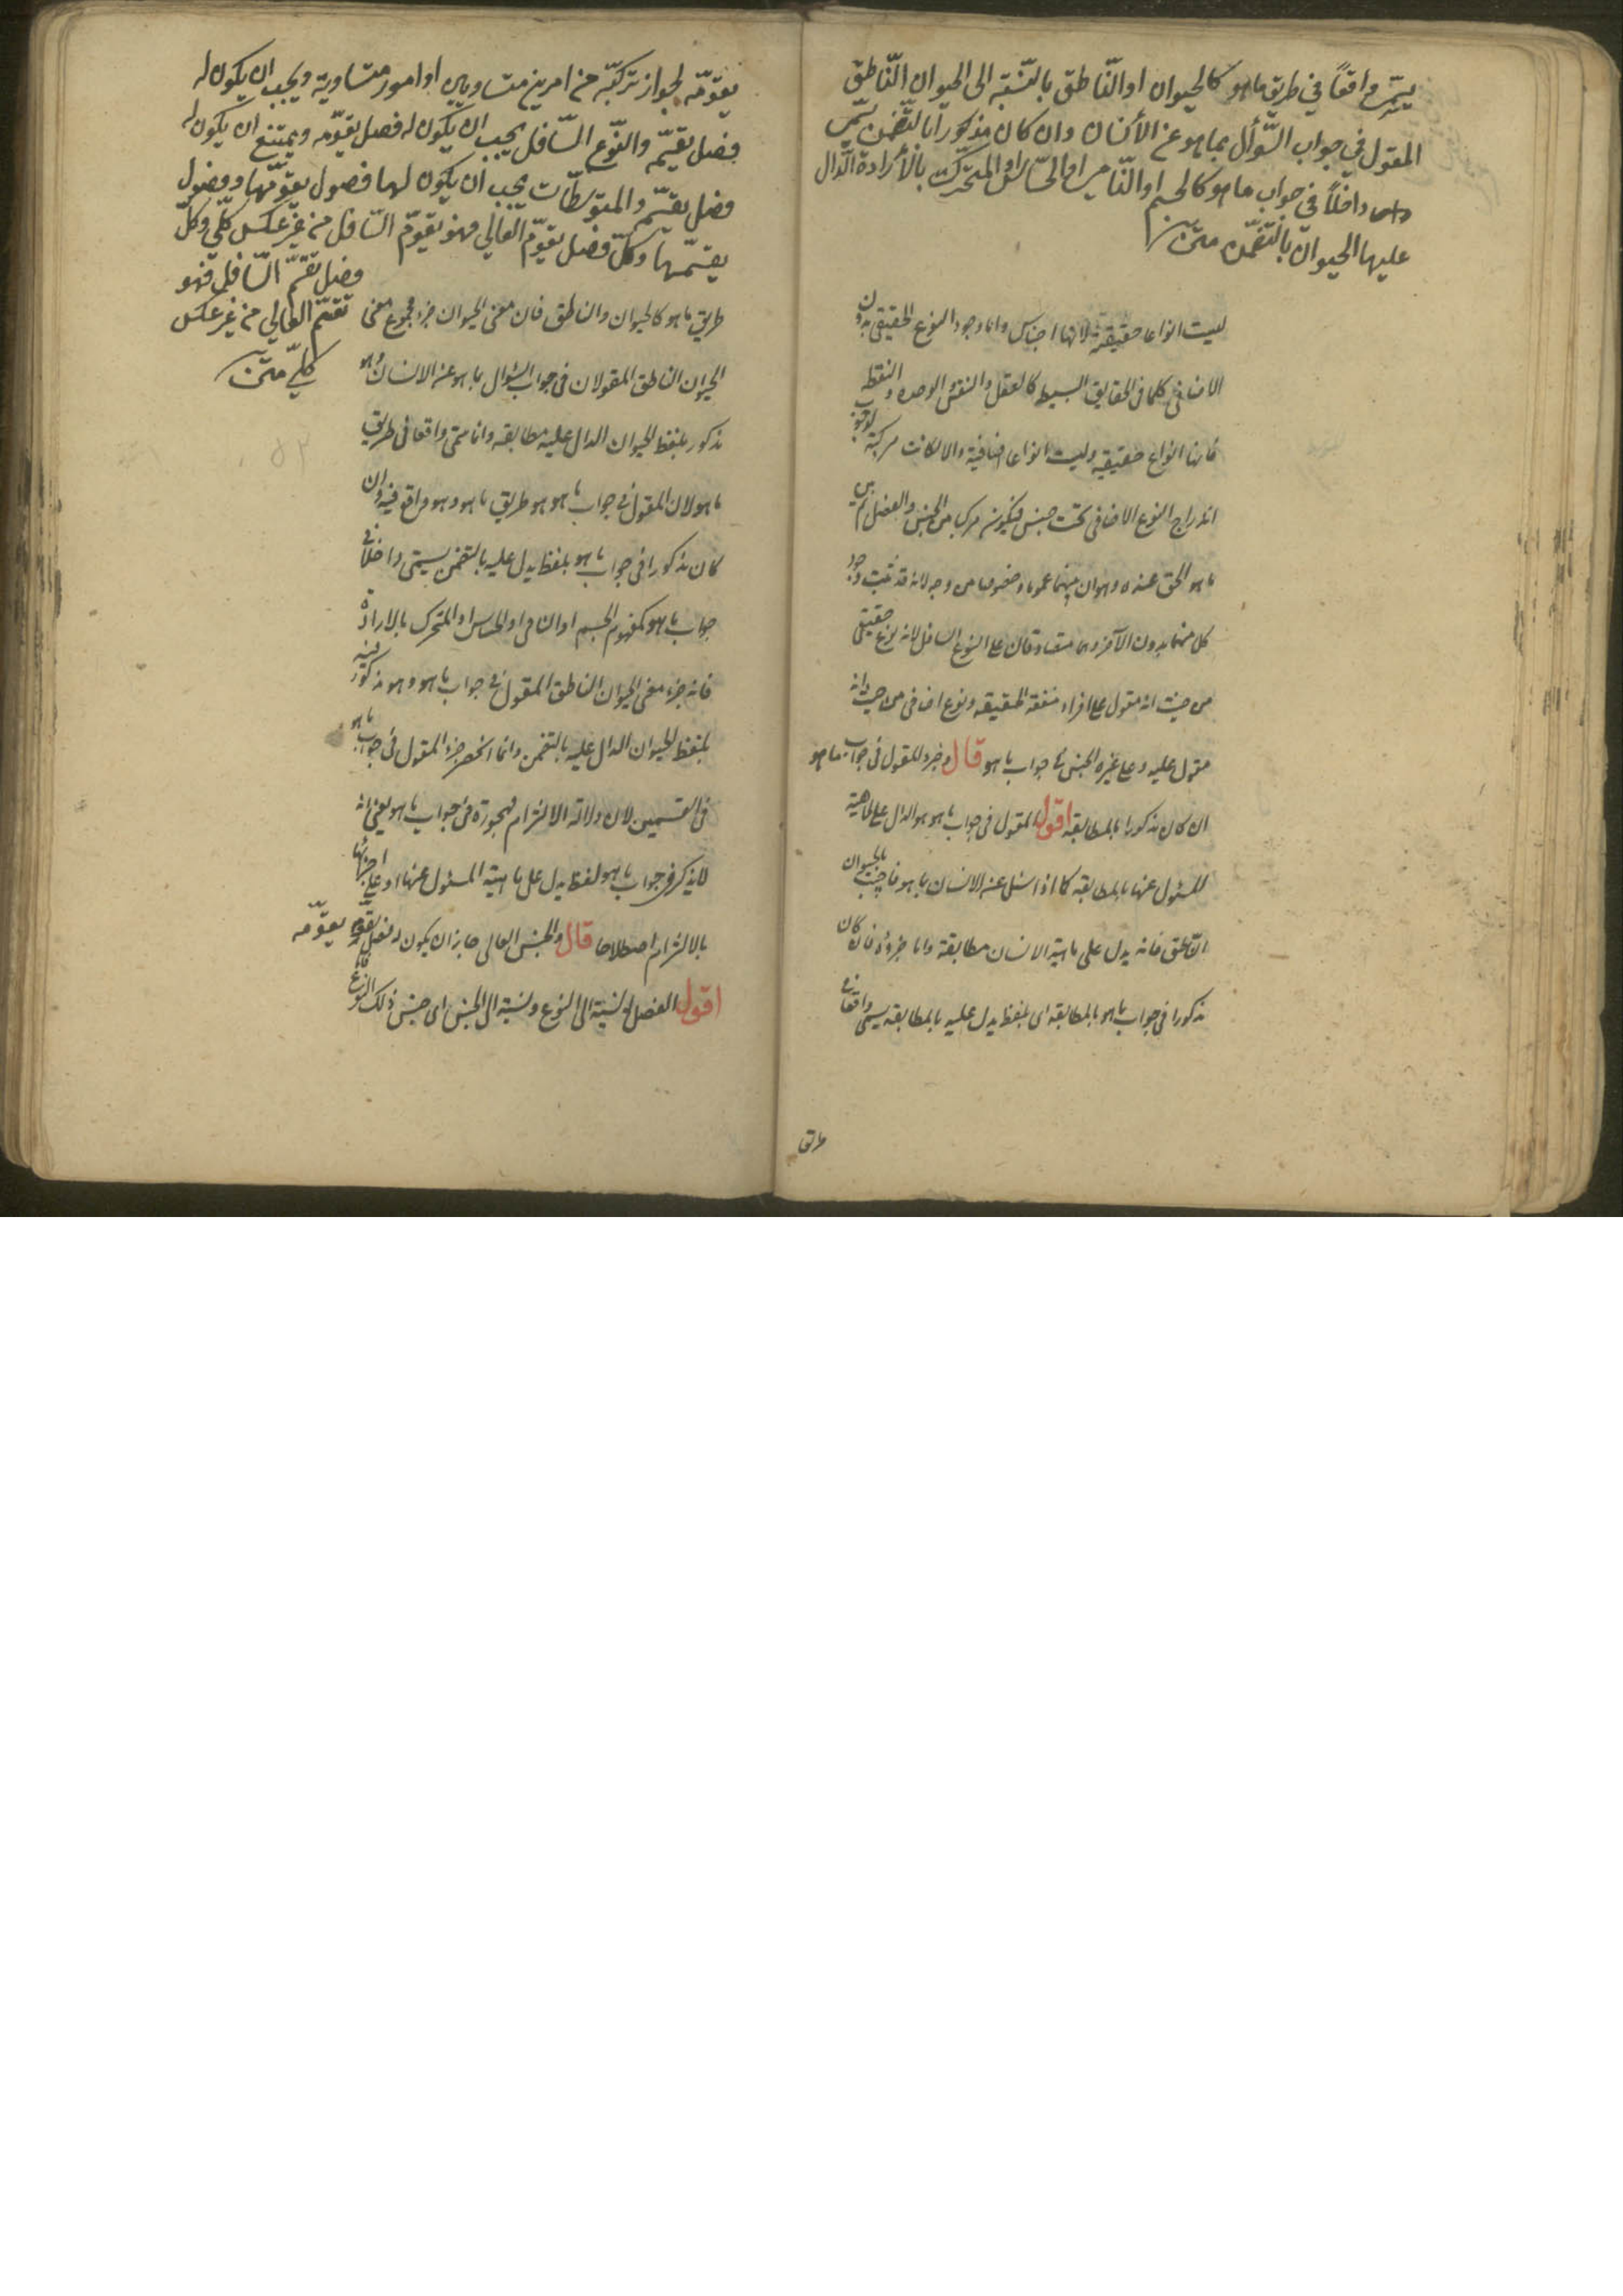 يسمى واقعًا في طريق ما هو كالحيوان او النّاطق بالنّسبة الى الحيوان النّاطق
المقول في جواب السّؤال بما هو عن الأنسان وان كان مذكورًا بالتّضمن يسمّى
داخلًا في جواب ما هو كالجسم او النّامي او الحسّاس او المتحرّك بالأرادة الدّال
عليها الحيوان بالتّضمّن متن
ليست انواعا حقيقية لانها اجناس واما وجود النوع الحقيقي بدون
الاضافي كما في الحقايق البسيطه كالعقل والنفس والوحده والنقطه
فانها انواع حقيقيه وليست انواعا اضافية والا لكانت مركبة لوجوب
اندراج النوع الاضافى تحت جنس فيكون مركبا من الجنس والفصل ثم بين
ما هو الحق عنده وهو ان بينهما عموما وخصوصا من وجه لانه قد ثبت وجود
كل منهما بدون الآخر وهما متصادقان على النوع السافل لانه نوع حقيقي
من حيث انه مقول على افراد متفقة الحقيقه ونوع اضافى من حيث انه
مقول عليه وعلى غيره الجنس في جواب ما هو قال وجزء المقول في جواب ما هو
ان كان مذكورا بالمطابقه اقول المقول فى جواب ما هو هو الدال على الماهية
المسئول عنها بالمطابقه كما اذا سئل عن الانسان بما هو فاجيب بالحيوان
الناطق فانه يدل على ماهية الانسان مطابقة واما جزؤه فان كان
مذكورا فى جواب ما هو بالمطابقه اى بلفظ يدل عليه بالمطابقه يسمى واقعا في
طريق
يقوّمه لجواز تركّبه من امرين متساويين او امور متساوية ويجب ان يكون له
فصل يقسّمه والنّوع السّافل يجب ان يكون له فصل يقوّمه ويمتنع ان يكون له
فصل يقسّمه والمتوسّطات يجب ان يكون لها فصول يقوّمها وفصول
يقسّمها وكلّ فصل يقوّم العالي فهو يقوّم السّافل من غير عكس كلّي وكلّ
فصل يقسّم السّافل فهو
يقسّم العالي من غير عكس
كلّي متن
طريق ما هو كالحيوان والناطق فان معنى الحيوان جزء لمجموع معنى
الحيوان الناطق المقولان فى جواب السؤال بما هو عن الانسان وهو
مذكور بلفظ الحيوان الدال عليه مطابقه وانما سمى واقعا فى طريق
ما هو لان المقول فى جواب ما هو هو طريق ما هو وهو واقع فيه وان
كان مذكورا فى جواب ما هو بلفظ يدل عليه بالتضمن يسمى داخلا في
جواب ما هو كمفهوم الجسم او النامى او الحساس او المتحرك بالارادة
فانه جزء معنى الحيوان الناطق المقول في جواب ما هو وهو مذكور فيه
بلفظ الحيوان الدال عليه بالتضمن وانما انحصر جزء المقول فى جواب ما هو
فى القسمين لان دلالة الالتزام مهجورة فى جواب ما هو يعنى انه
لا يذكر فى جواب ما هو لفظ يدل على ماهية المسئول عنها او على اجزائها
بالالتزام اصطلاحا قال والجنس العالى جاز ان يكون له فصل يقوّمه
اقول الفصل له نسبة الى النوع ونسبة الى الجنس اى جنس ذلك النوع